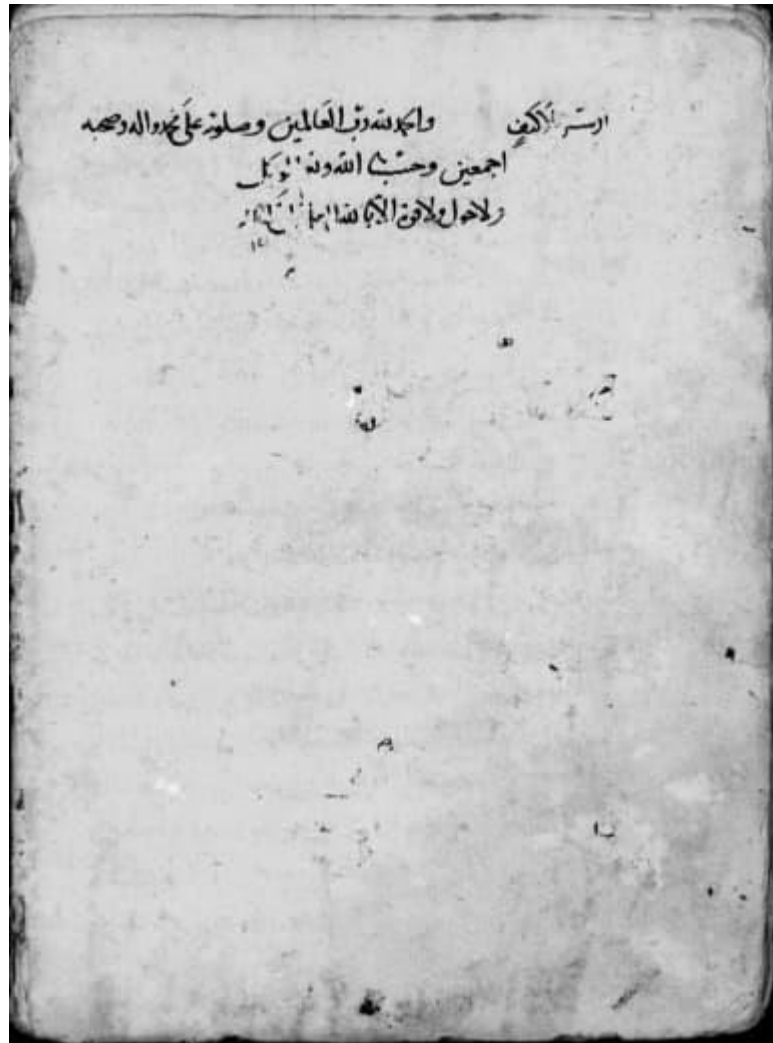 والحمد لله رب العالمين وصلوته على محمد واله وصحبه
اجمعين وحسبنا الله ونعم الوكيل
ولا حول ولا قوة الا بالله العلي